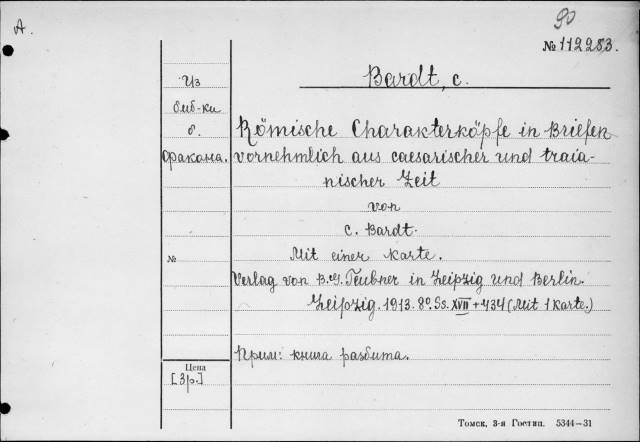 A.
90
№ 112283.
Bardt, C.
Из
биб-ки
б.
факона.
Römische Charakterköpfe in Briefen
vornehmlich aus caesarischer und traia-
nischer Zeit
von
C. Bardt.
Mit einer Karte.
№
Verlag von B. G. Teubner in Leipzig und Berlin.
Leipzig. 1913. 8º. Ss. XVII + 434 (Mit 1 Karte.)
Прим: книга разбита.
Цена
[3р.]
Томск, 3-я Гостип. 5344—31